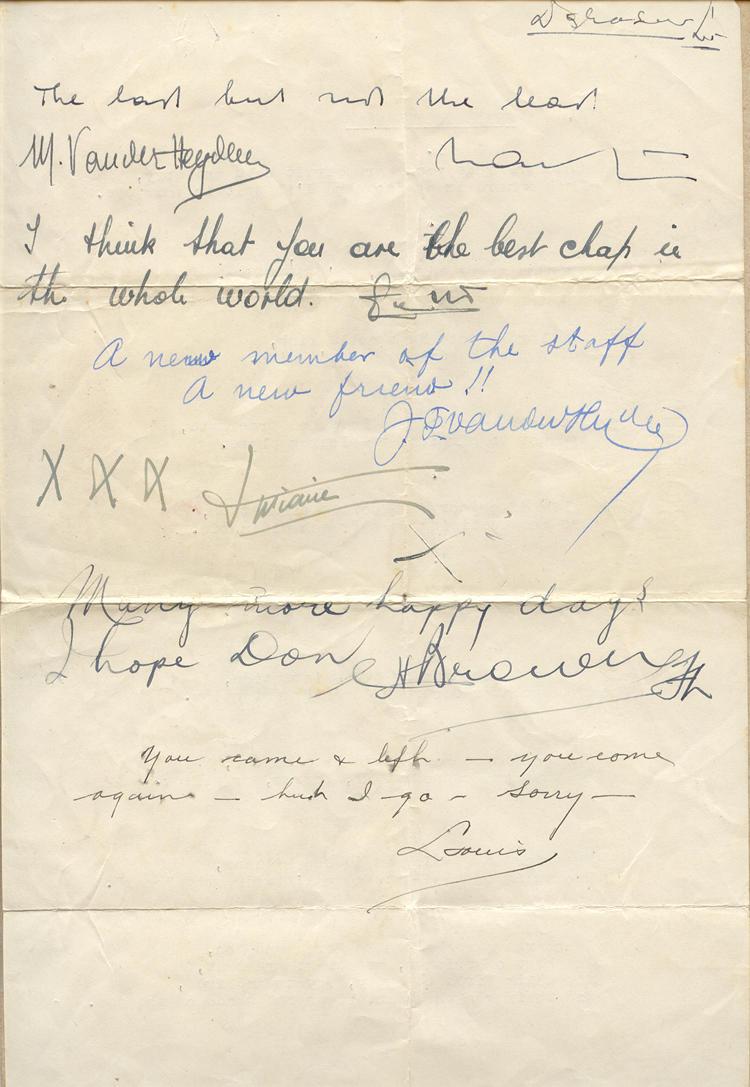 The last but not the least.
M. Vander Heyden
I think that you are the best chap in
the whole world.
A new member of the staff
A new friend!!
X X X
X
Many more happy days
I hope Don Brown
You came & left — you come
again — but I go — Sorry —
Louis